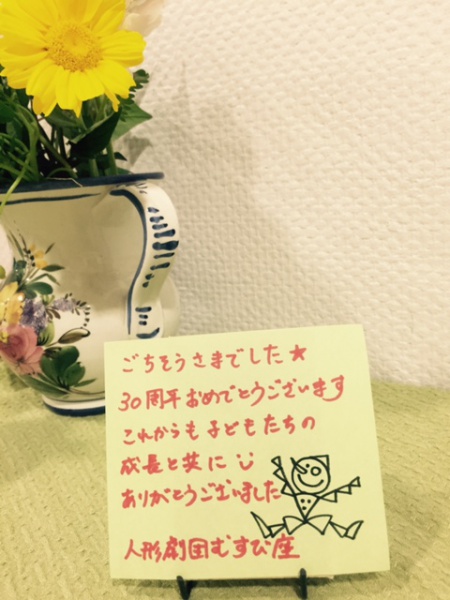 ごちそうさまでした★
30周年おめでとうございます
これからも子どもたちの
成長と共に
ありがとうございました
人形劇団むすび座